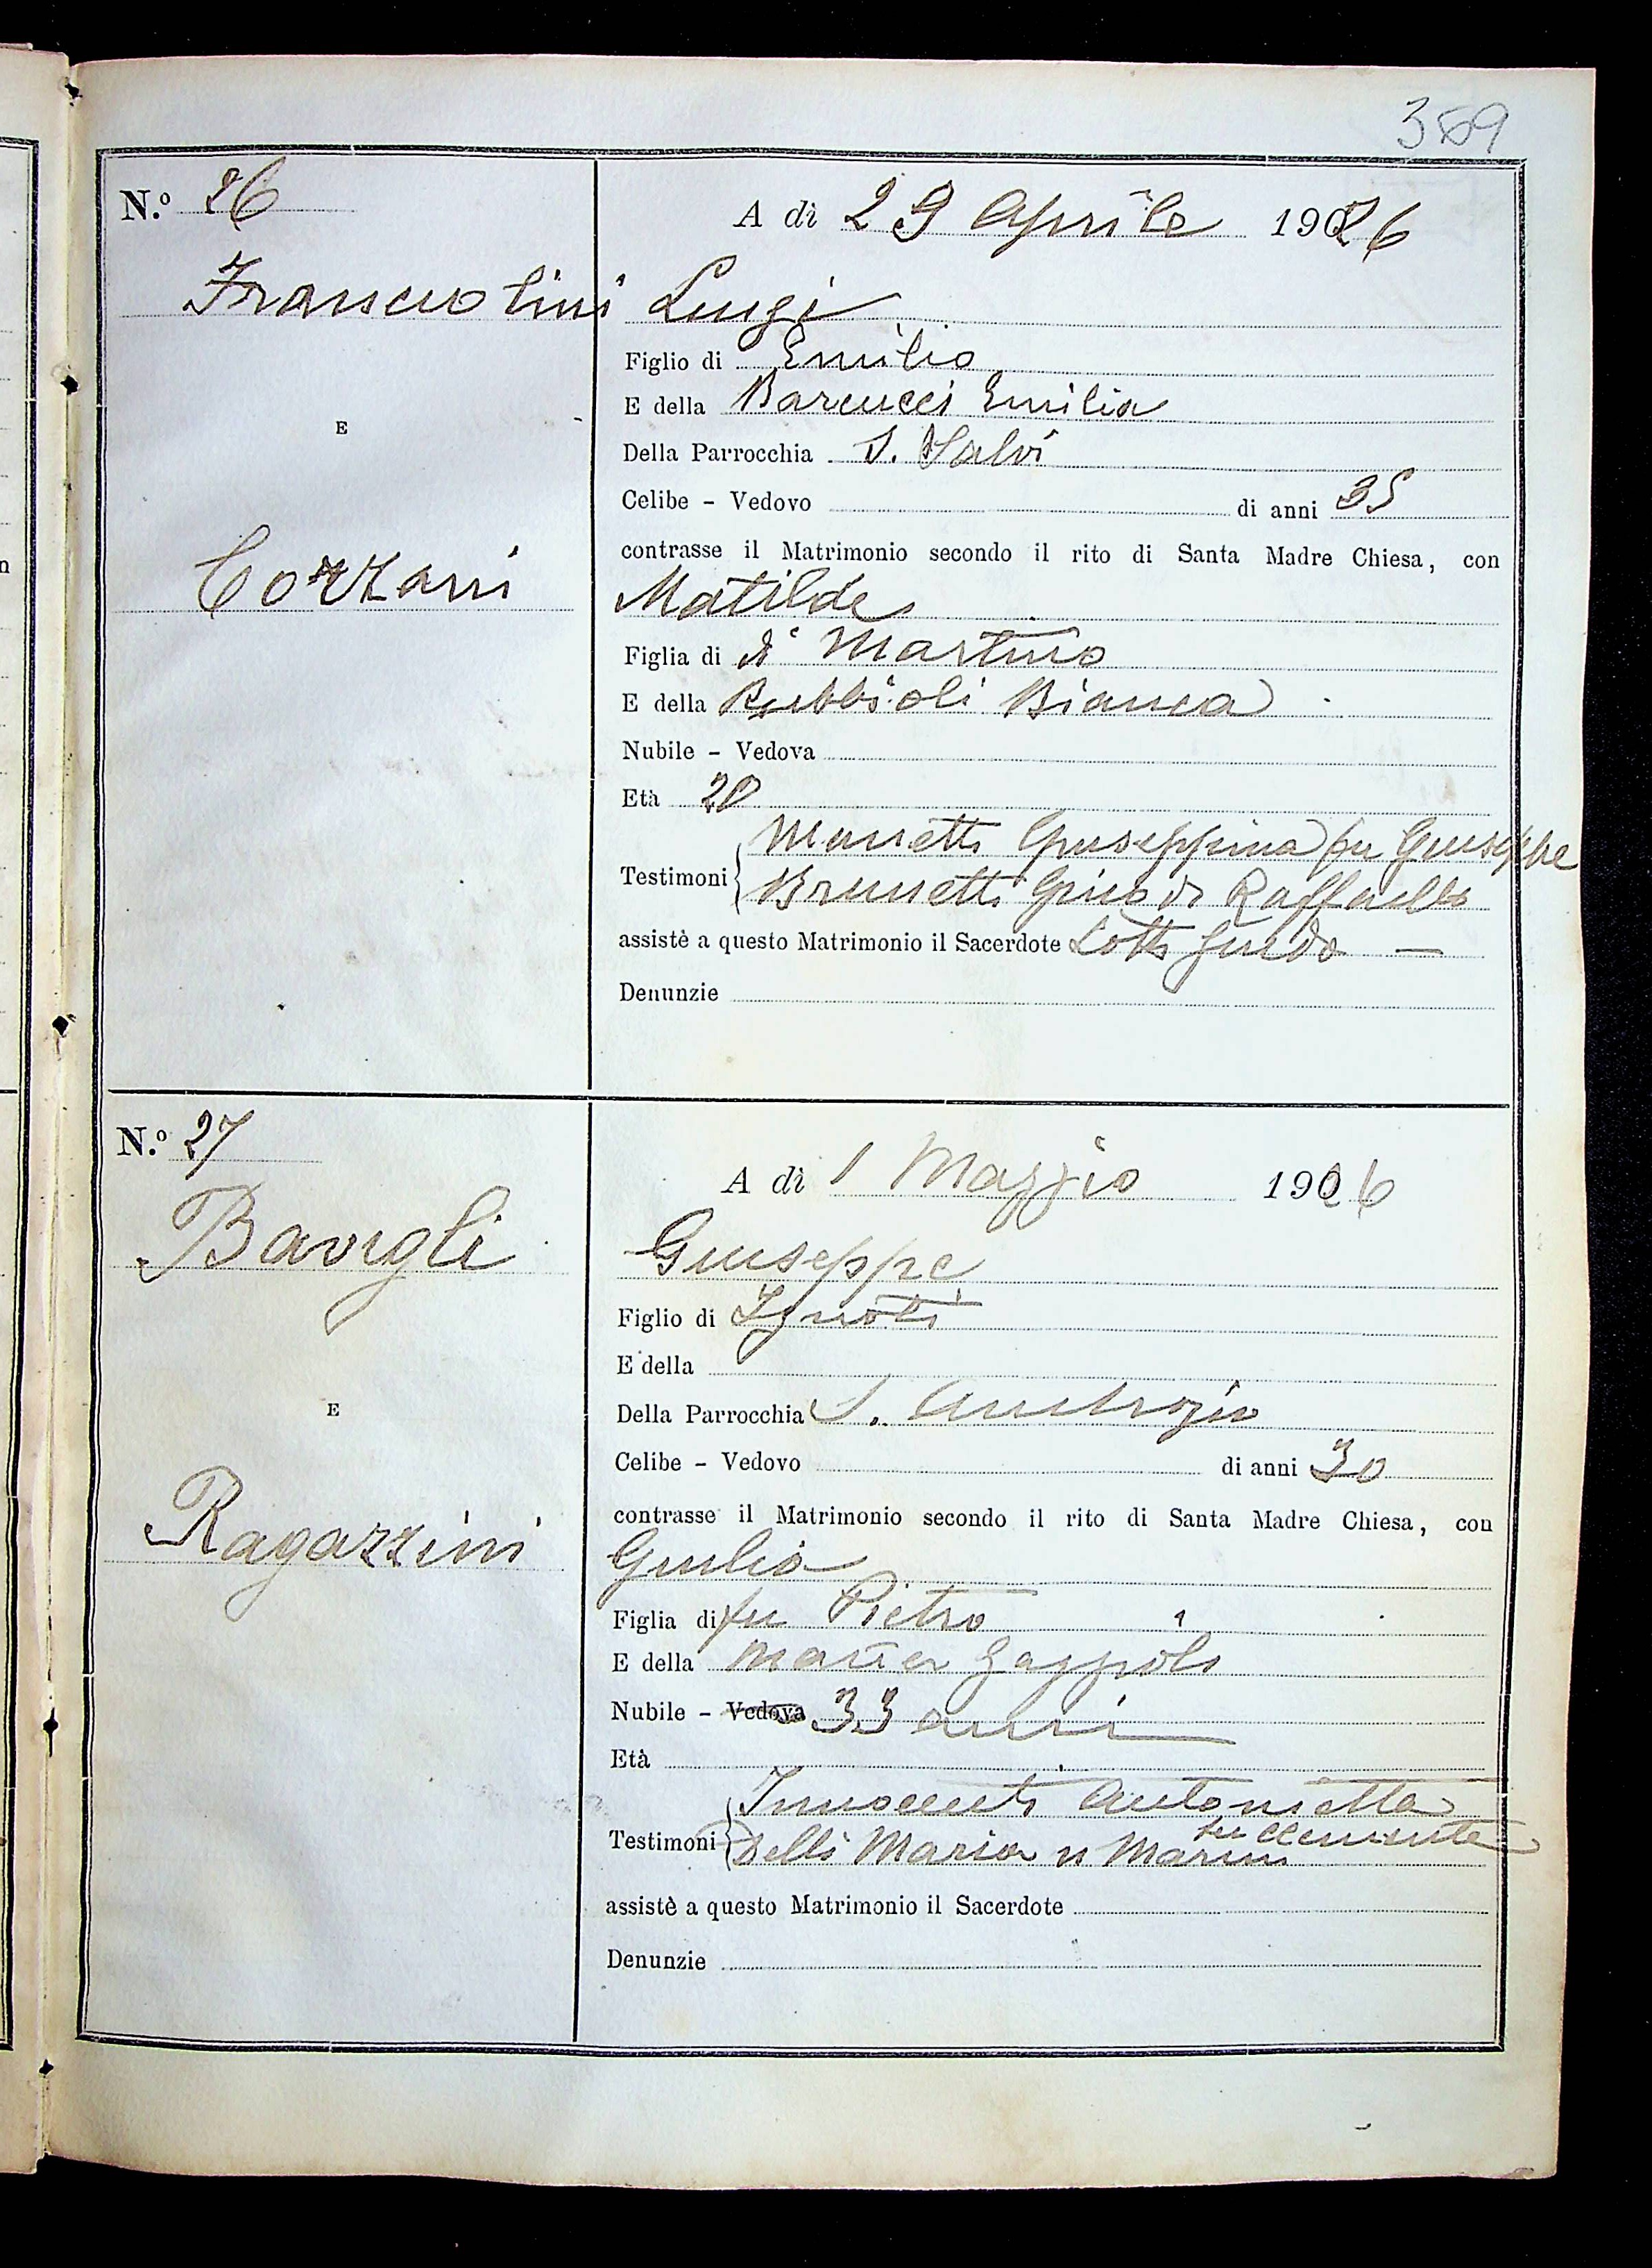 359
N.º 26
A dì 29 Aprile 1926
Francolini Luigi
Figlio di Emilio
E della Barcucci Emilia
E
Della Parrocchia S. Salvi
Celibe - Vedovo di anni 35
contrasse il Matrimonio secondo il rito di Santa Madre Chiesa, con
Cozzani Matilde
Figlia di di Martino
E della Rubbioli Bianca
Nubile - Vedova
Età 20
Giuseppina fu Giuseppe
Testimoni Brunetti Gino di Raffaello
assistè a questo Matrimonio il Sacerdote Lotti Guido —
Denunzie
N.º 27
A dì 1 Maggio 1926
Bavigli Giuseppe
Figlio di Ignoti
E della
E
Della Parrocchia S. Ambrogio
Celibe - Vedovo di anni 30
contrasse il Matrimonio secondo il rito di Santa Madre Chiesa, con
Ragazzini Giulia
Figlia di fu Pietro
E della Maria
Nubile - Vedova 33 anni
Età
Innocenti Antonietta
fu Clemente
Testimoni Delli Maria n Marini
assistè a questo Matrimonio il Sacerdote
Denunzie